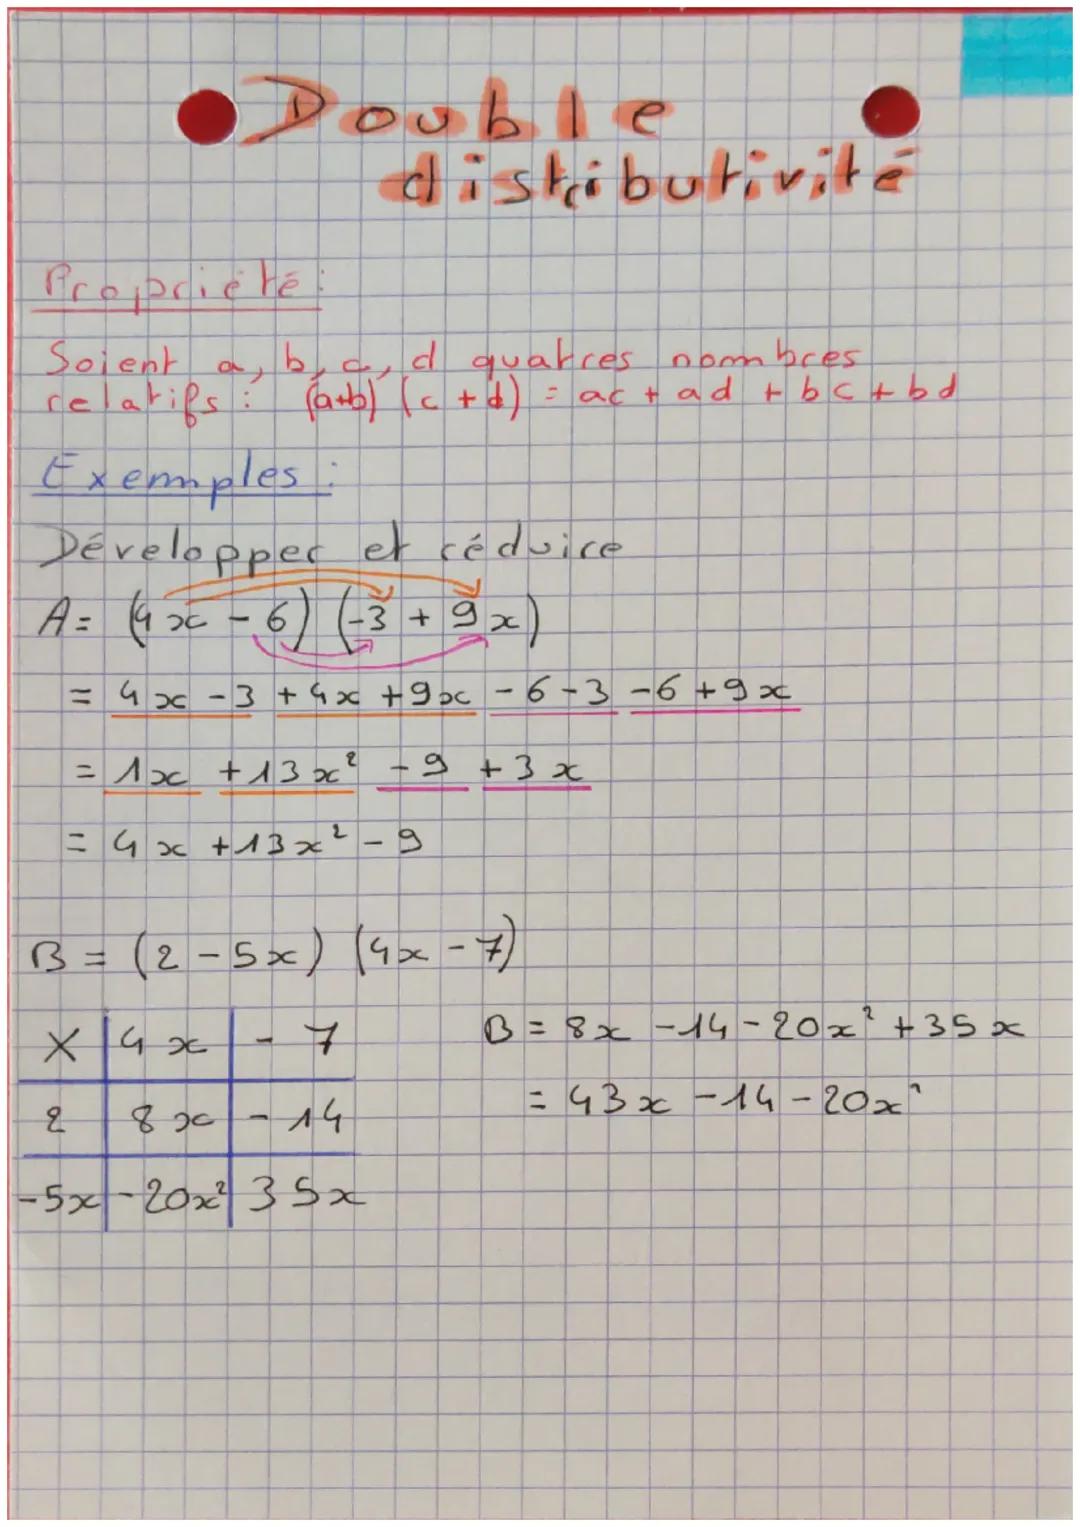 Double
distributivité
Propriété :
Soient a, b, c, d quatres nombres
relatifs : (a+b) (c + d) = ac + ad + bc + bd
Exemples :
Développer et réduire
A = (4x - 6) (-3 + 9x)
= 4x - 3 + 4x + 9x - 6 - 3 - 6 + 9x
= 1x + 13x² - 9 + 3x
= 4x + 13x² - 9
B = (2 - 5x) (4x - 7)
X 4x - 7
2 8x - 14
-5x -20x² 35x
B = 8x - 14 - 20x² + 35x
= 43x - 14 - 20x²